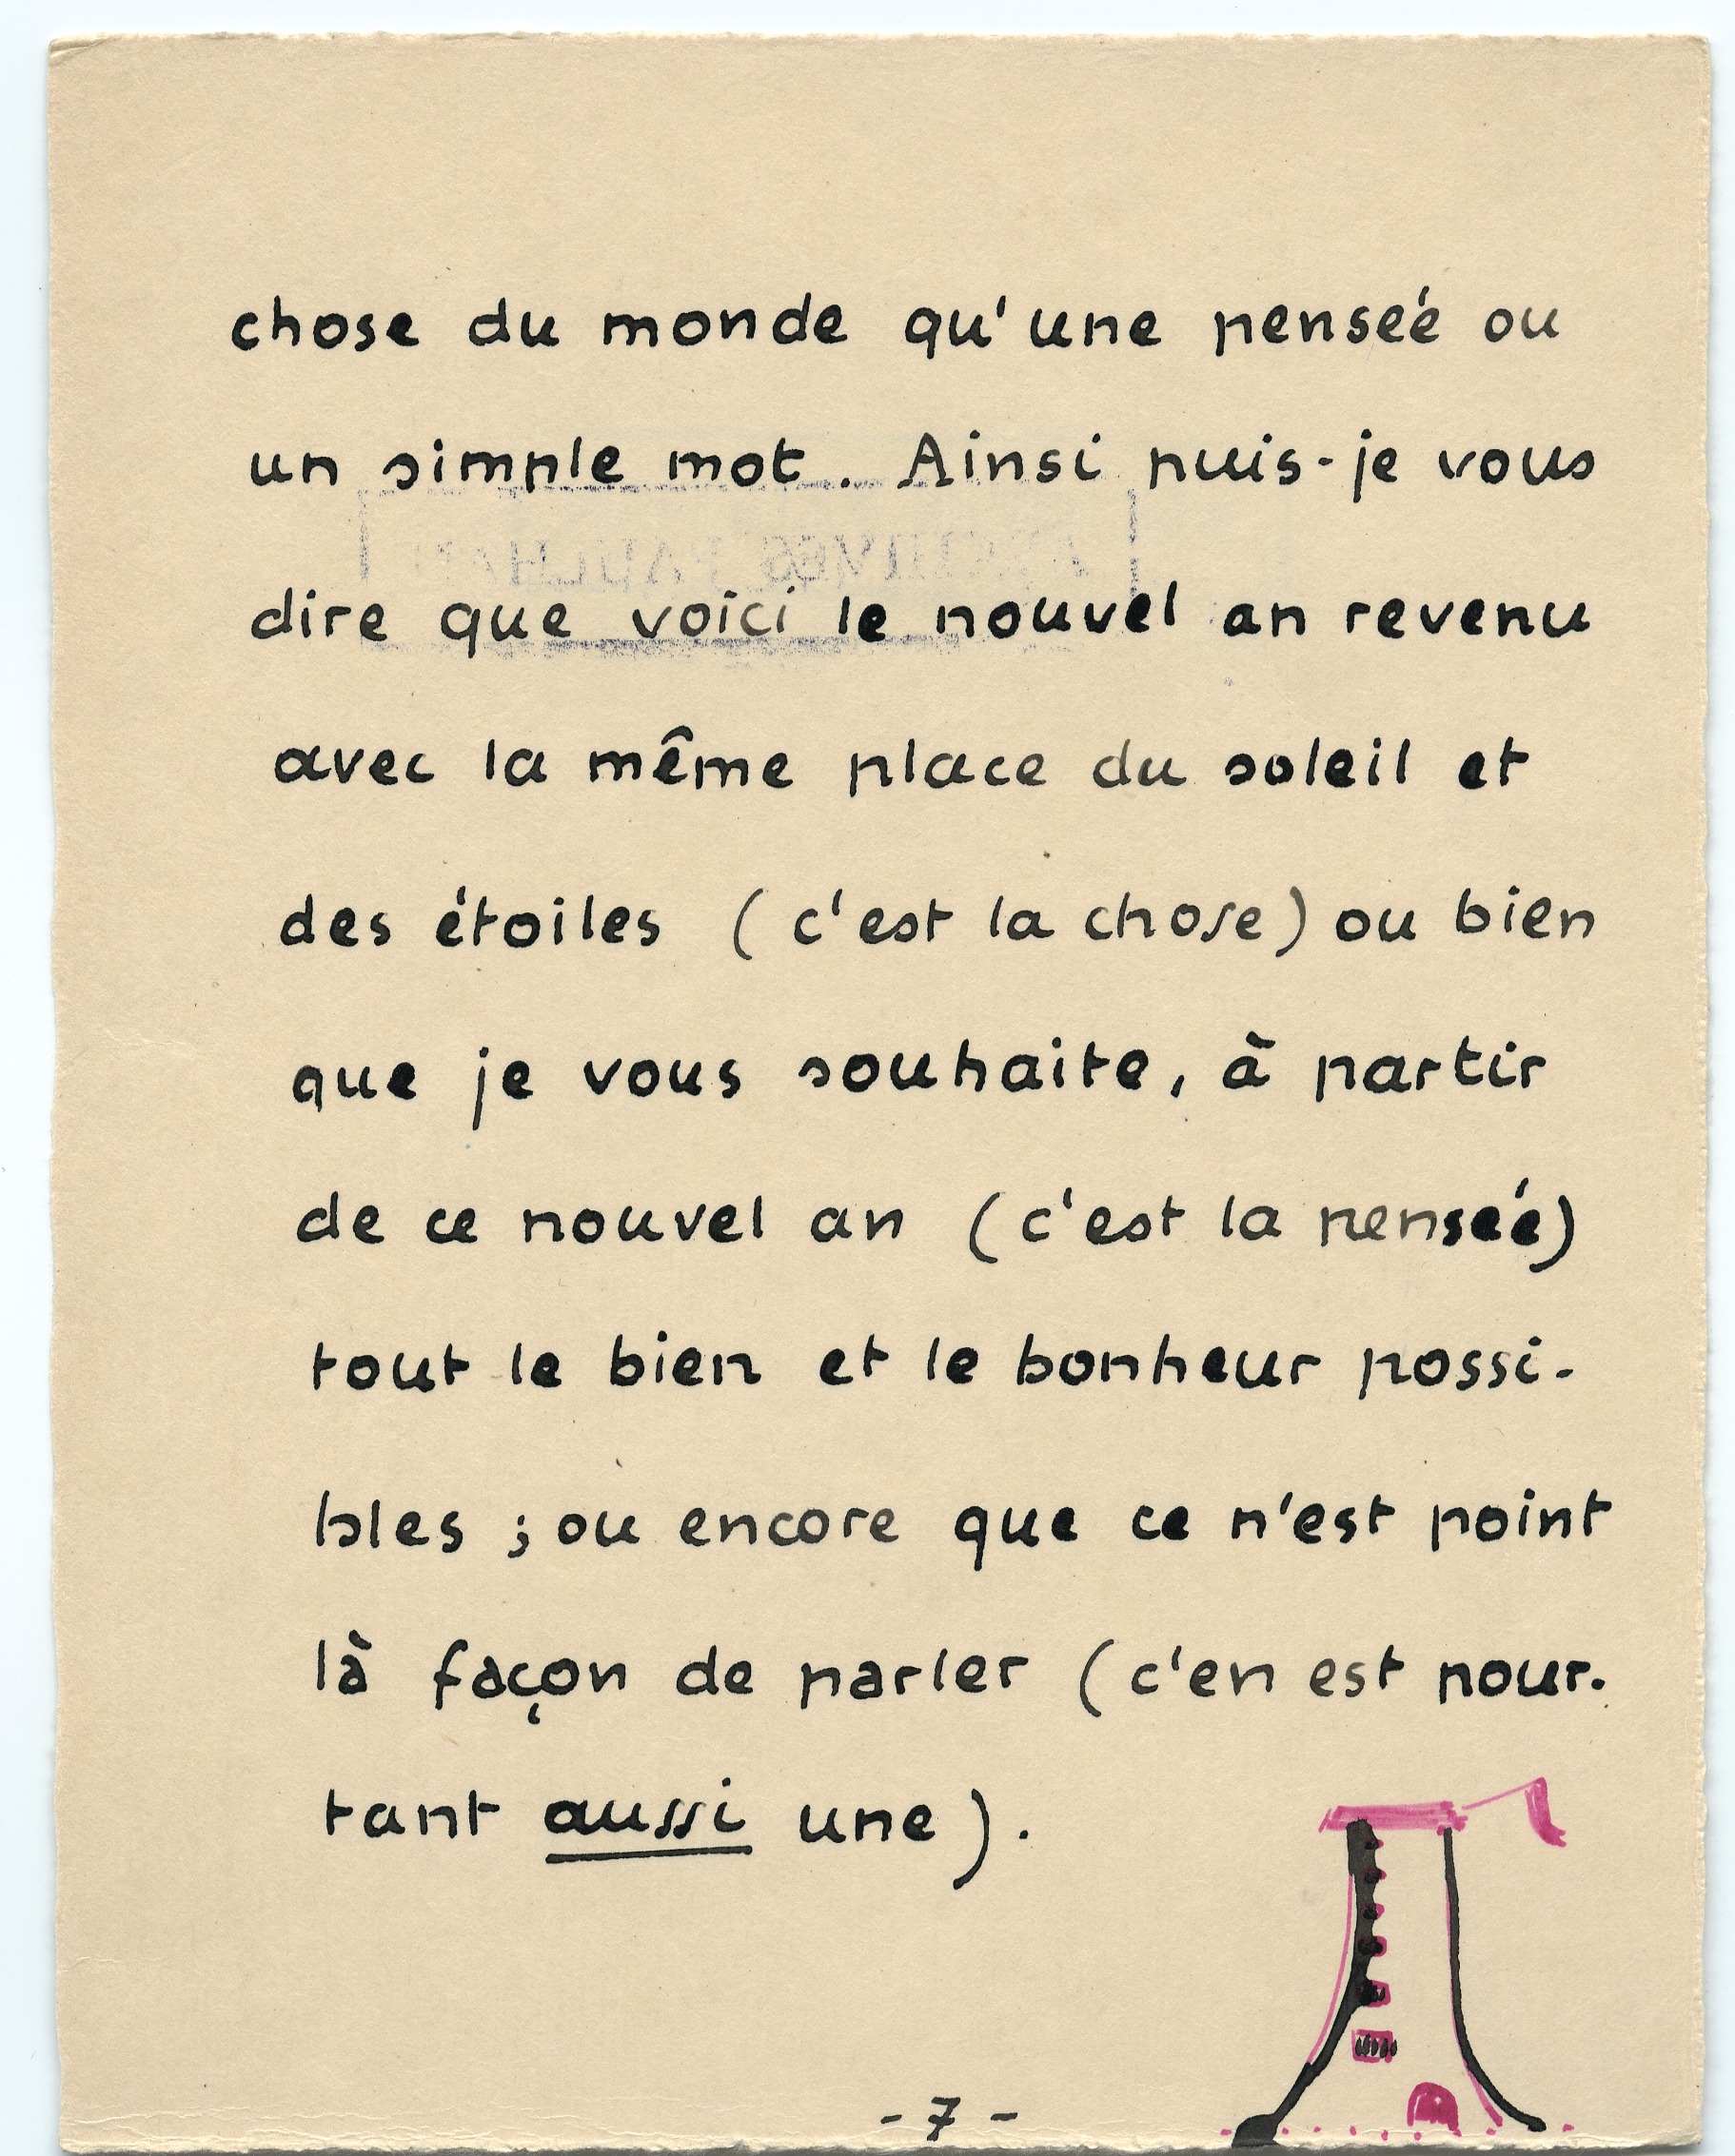 chose du monde qu'une pensée ou
un simple mot. Ainsi puis-je vous
ARCHIVES PAULHAN
dire que voici le nouvel an revenu
avec la même place du soleil et
des étoiles (c'est la chose) ou bien
que je vous souhaite, à partir
de ce nouvel an (c'est la pensée)
tout le bien et le bonheur possi-
bles ; ou encore que ce n'est point
là façon de parler (c'en est pour-
tant aussi une).
- 7 -